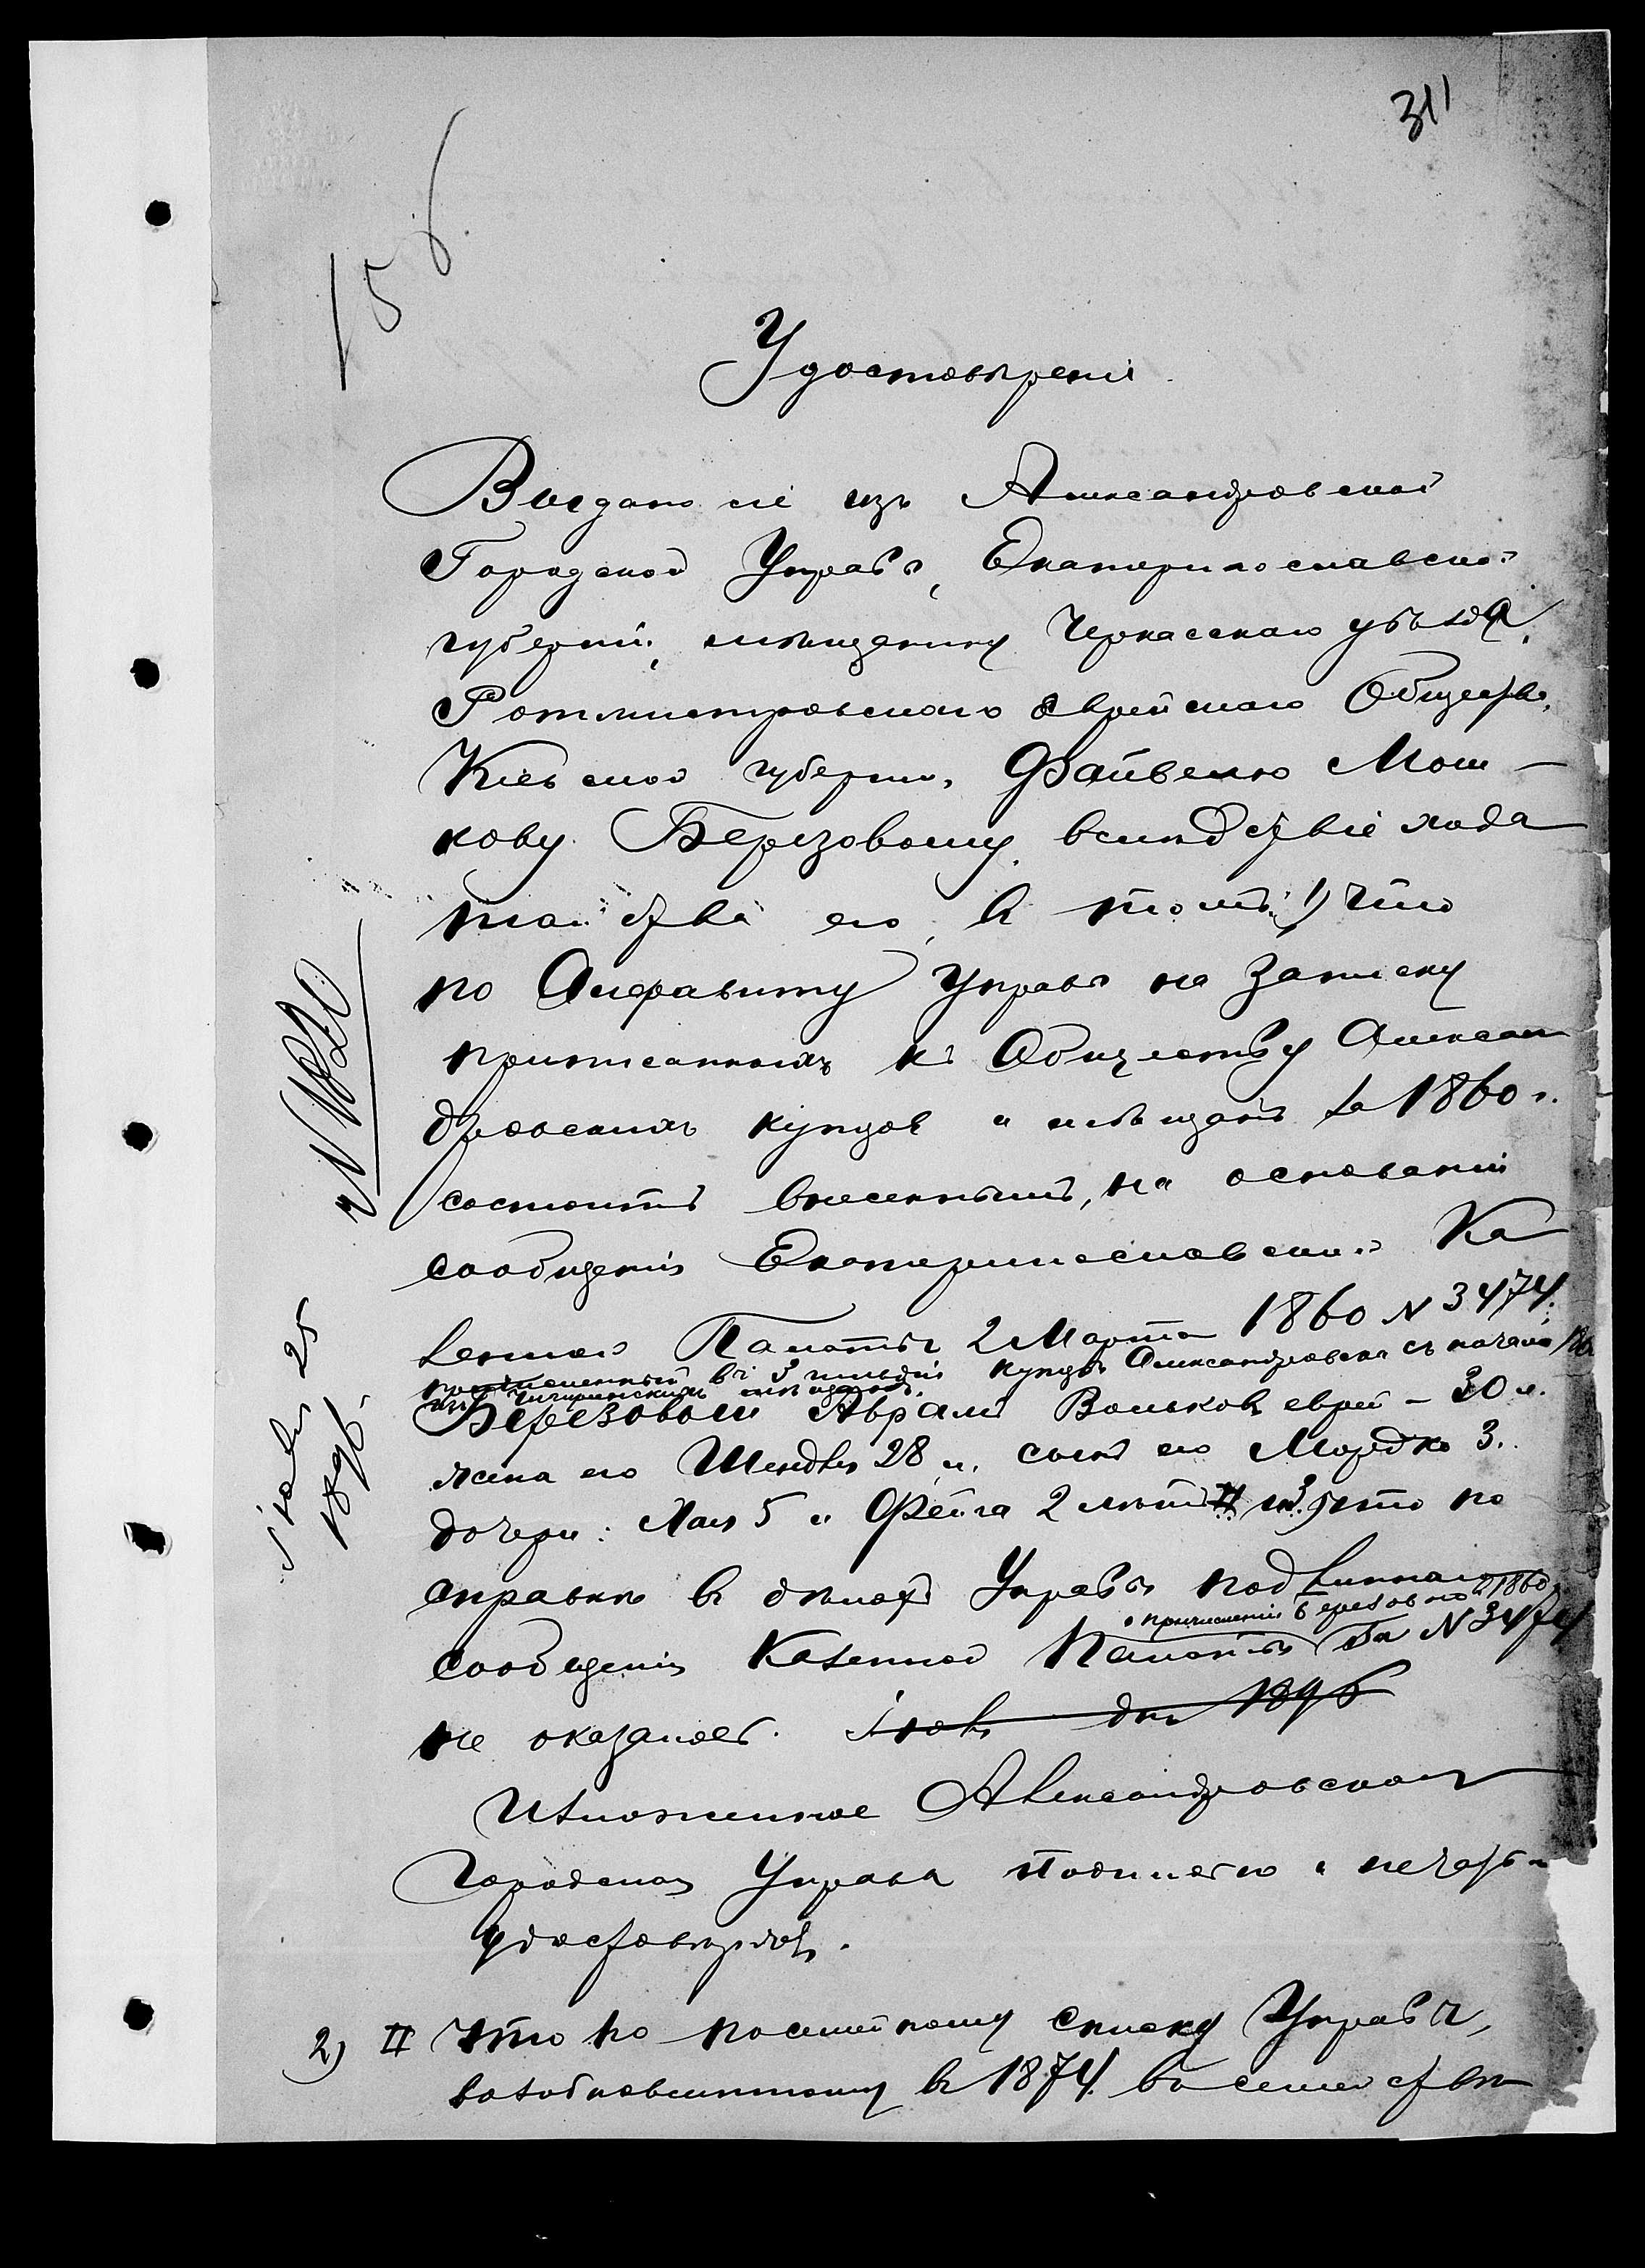 311
15 б.
Удостовѣреніе
Выдано сіе изъ Александровской
Городской Управы, Екатеринославской
губерніи, мѣщанину Черкасскаго уѣзда,
Ротмистровскаго Еврейскаго Общества,
Кіевской губерніи, Файвелю Мош-
кову Березовому, вслѣдствіе хода
тайства его, въ томъ: 1) что
по Алфавиту Управы на записку
приписанныхъ къ Обществу Алексан
дровскихъ купцовъ и мѣщанъ за 1860 г.
состоитъ внесеннымъ, на основаніи
сообщенія Екатеринославской Ка
зенной Палаты 2 Марта 1860 № 3474,
причисленный въ 3 гильдіи купцы Александровска съ начала 186
изъ Чигиринскихъ мѣщанъ.
Березовой Абрамъ Вольковъ еврей - 30 л.
жена его Шендля 28 л. сынъ его Мордко 3.
дочери: Хая 5 и Фейга 2 лѣтъ II и 3) что по
справкѣ въ дѣлахъ Управы подлиннаго
о причисленіи Березоваго 1860
сообщенія Казенной Палаты за № 3474
не оказалось. Іюля дня 1896
Изложенное Александровская
Городская Управа подписью и печатью
удостовѣряетъ.
2) II Что по посемейному списку Управы,
возобновленному въ 1874 въ семействѣ
№ 1820
Іюля 25
1896.